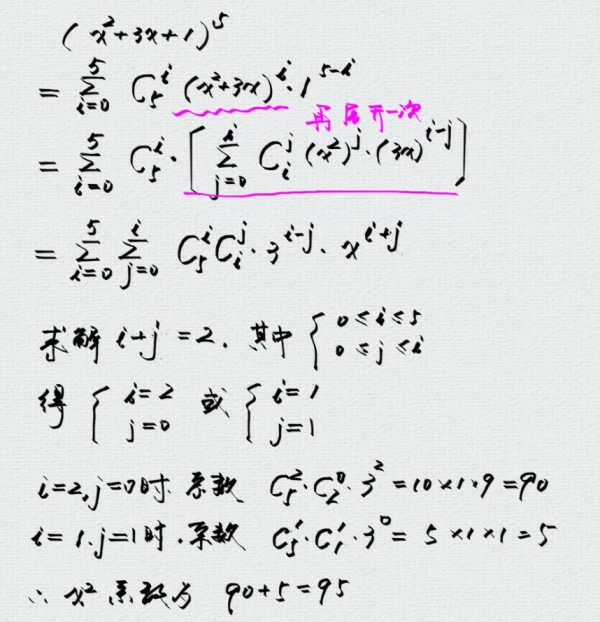 (x²+3x+1)⁵
= ∑_{i=0}^{5} C₅ⁱ (x²+3x)ⁱ·1^{5-i}
再展开一次
= ∑_{i=0}^{5} C₅ⁱ·[∑_{j=0}^{i} C_i^j (x²)^j·(3x)^{i-j}]
= ∑_{i=0}^{5} ∑_{j=0}^{i} C₅ⁱ C_i^j·3^{i-j}·x^{i+j}
求解 i+j=2. 其中 { 0≤i≤5 0≤j≤i
得 { i=2 j=0 或 { i=1 j=1
i=2,j=0时. 系数 C₅²·C₂⁰·3²=10×1×9=90
i=1.j=1时.系数 C₅¹·C₁¹·3⁰= 5×1×1=5
∴ x² 系数为 90+5=95